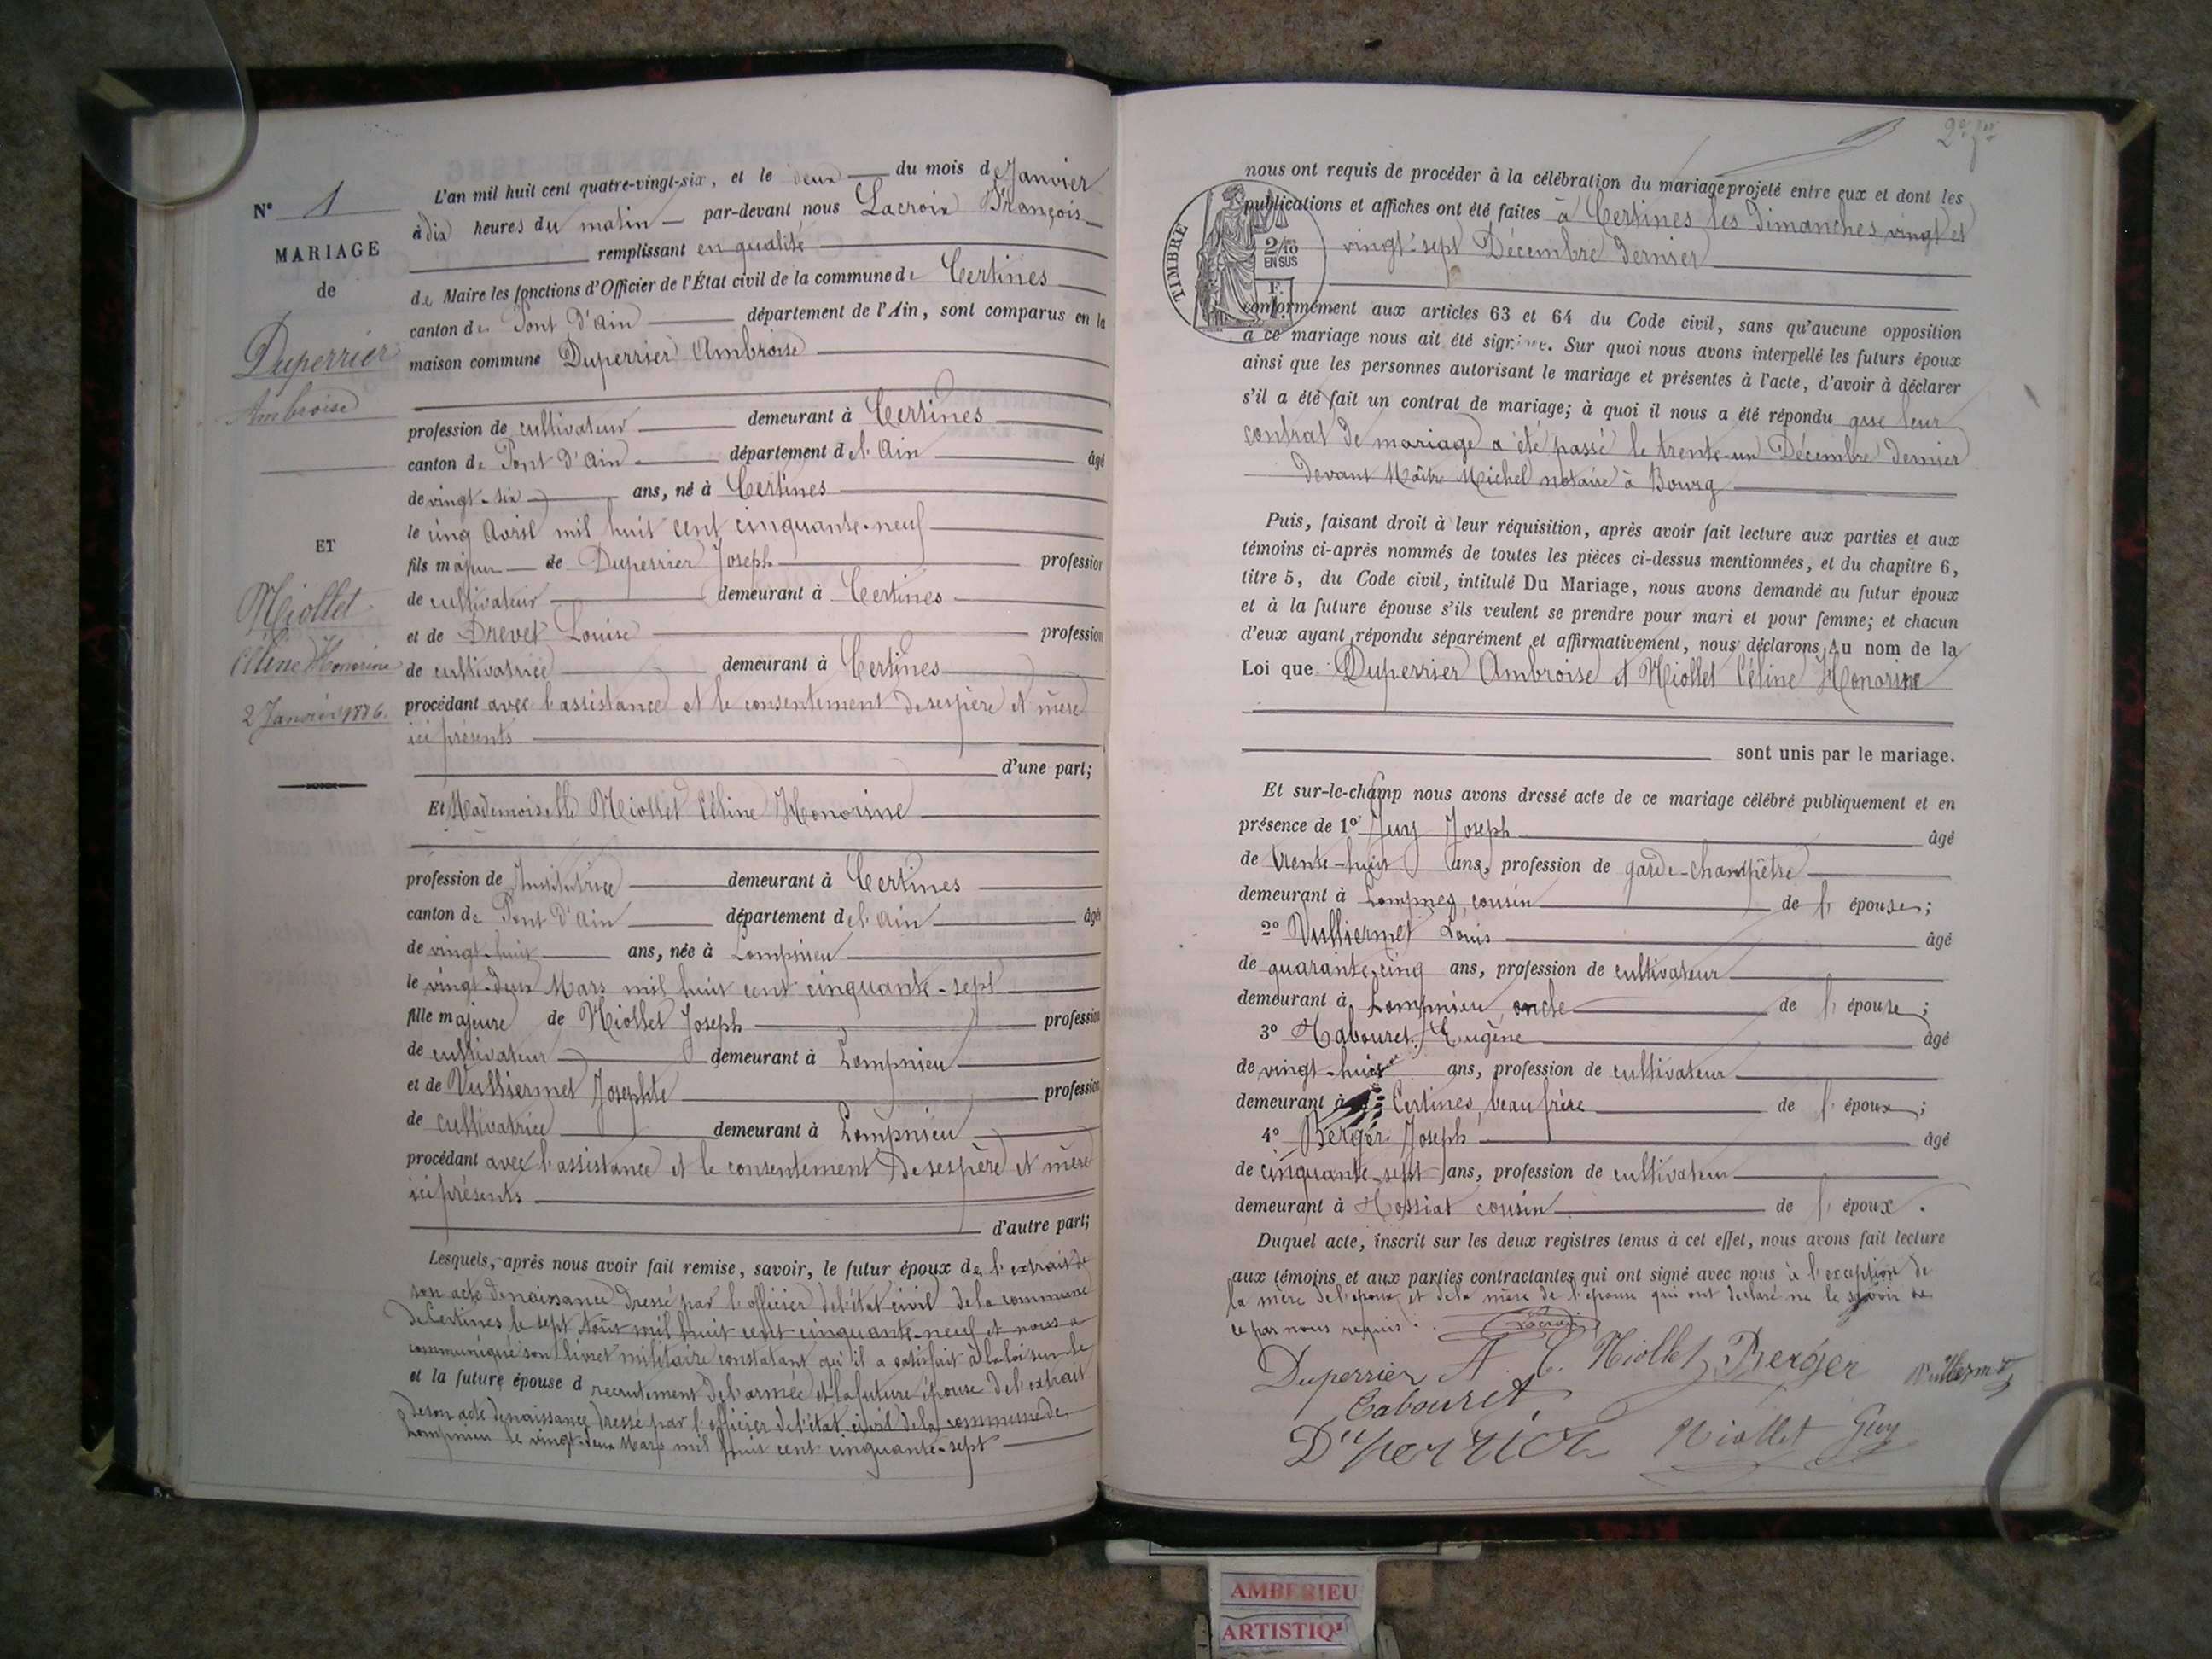 N° 1
MARIAGE
de
Duperrier
Ambroise
ET
Niollet
Céline Honorine
2 Janvier 1886.
L'an mil huit cent quatre-vingt-six, et le deux du mois de Janvier
à dix heures du matin par-devant nous Lacroix François
remplissant en qualité
de Maire les fonctions d'Officier de l'État civil de la commune de Certines
canton de Pont d'Ain département de l'Ain, sont comparus en la
maison commune Duperrier Ambroise
profession de cultivateur demeurant à Certines
canton de Pont d'Ain département de l'Ain âgé
de vingt-six ans, né à Certines
le cinq Avril mil huit cent cinquante-neuf
fils majeur de Duperrier Joseph profession
de cultivateur demeurant à Certines
et de Drevet Louise profession
de cultivatrice demeurant à Certines
procédant avec l'assistance et le consentement de ses père et mère
ici présents
d'une part;
Et Mademoiselle Niollet Céline Honorine
profession de Institutrice demeurant à Certines
canton de Pont d'Ain département de l'Ain âgée
de vingt-huit ans, née à Lompnieu
le vingt-deux Mars mil huit cent cinquante-sept
fille majeure de Niollet Joseph profession
de cultivateur demeurant à Lompnieu
et de Vulliermet Josephte profession
de cultivatrice demeurant à Lompnieu
procédant avec l'assistance et le consentement de ses père et mère
ici présents
d'autre part;
Lesquels, après nous avoir fait remise, savoir, le futur époux de l'extrait de
son acte de naissance dressé par l'officier de l'état civil de la commune
de Certines le sept Août mil huit cent cinquante-neuf et nous a
communiqué son livret militaire constatant qu'il a satisfait à la loi sur le
et la future épouse d recrutement de l'armée et la future épouse de l'extrait
de son acte de naissance dressé par l'officier de l'état civil de la commune de
Lompnieu le vingt-deux Mars mil huit cent cinquante-sept
nous ont requis de procéder à la célébration du mariage projeté entre eux et dont les
publications et affiches ont été faites à Certines les dimanches vingt et
vingt-sept Décembre dernier
TIMBRE
2/10
EN SUS
conformément aux articles 63 et 64 du Code civil, sans qu'aucune opposition
à ce mariage nous ait été signifiée. Sur quoi nous avons interpellé les futurs époux
ainsi que les personnes autorisant le mariage et présentes à l'acte, d'avoir à déclarer
s'il a été fait un contrat de mariage; à quoi il nous a été répondu que leur
contrat de mariage a été passé le trente-un Décembre dernier
devant Maître Michel notaire à Bourg
Puis, faisant droit à leur réquisition, après avoir fait lecture aux parties et aux
témoins ci-après nommés de toutes les pièces ci-dessus mentionnées, et du chapitre 6,
titre 5, du Code civil, intitulé Du Mariage, nous avons demandé au futur époux
et à la future épouse s'ils veulent se prendre pour mari et pour femme; et chacun
d'eux ayant répondu séparément et affirmativement, nous déclarons Au nom de la
Loi que Duperrier Ambroise et Niollet Céline Honorine
sont unis par le mariage.
Et sur-le-champ nous avons dressé acte de ce mariage célébré publiquement et en
présence de 1° Guy Joseph âgé
de trente-huit ans, profession de garde-champêtre
demeurant à cousin de l' épouse;
2° Vulliermet Louis âgé
de quarante-cinq ans, profession de cultivateur
demeurant à Lompnieu, oncle de l' épouse;
3° Cabouret Eugène âgé
de vingt-huit ans, profession de cultivateur
demeurant à Certines, beau frère de l' époux;
4° Berger Joseph âgé
de cinquante-sept ans, profession de cultivateur
demeurant à Tossiat cousin de l' époux.
Duquel acte, inscrit sur les deux registres tenus à cet effet, nous avons fait lecture
aux témoins et aux parties contractantes qui ont signé avec nous à l'exception de
la mère de l'époux et de la mère de l'épouse qui ont déclaré ne le savoir de
ce par nous requis.
Lacroix
Duperrier A. C. Niollet Berger Vulliermet
Cabouret
Duperrier Niollet Guy
AMBERIEU
ARTISTIQ